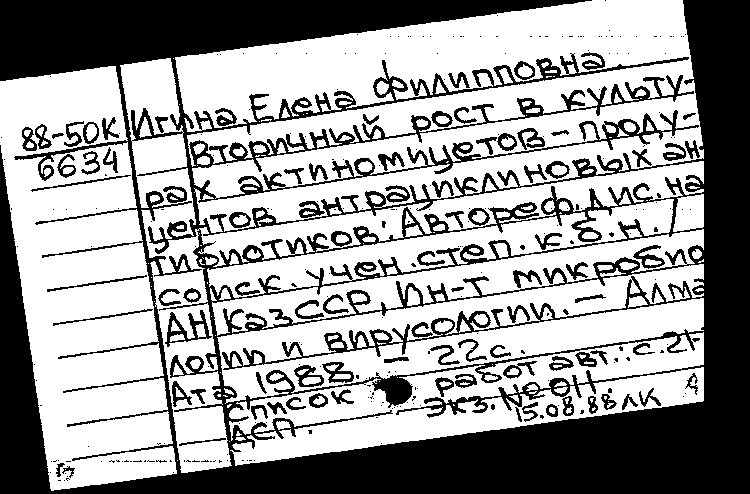 88-50К
6634
Игина, Елена Филипповна.
Вторичный рост в культу-
рах актиномицетов - проду-
центов антрациклиновых ан-
тибиотиков: Автореф. дис. на
соиск. учен. степ. к.б.н. /
АН КазССР, Ин-т микробио
логии и вирусологии. — Алма
Ата, 1988. — 22с.
Список работ авт.: с. 21-
ДСП. Экз. № 011.
15.08.88 ЛК